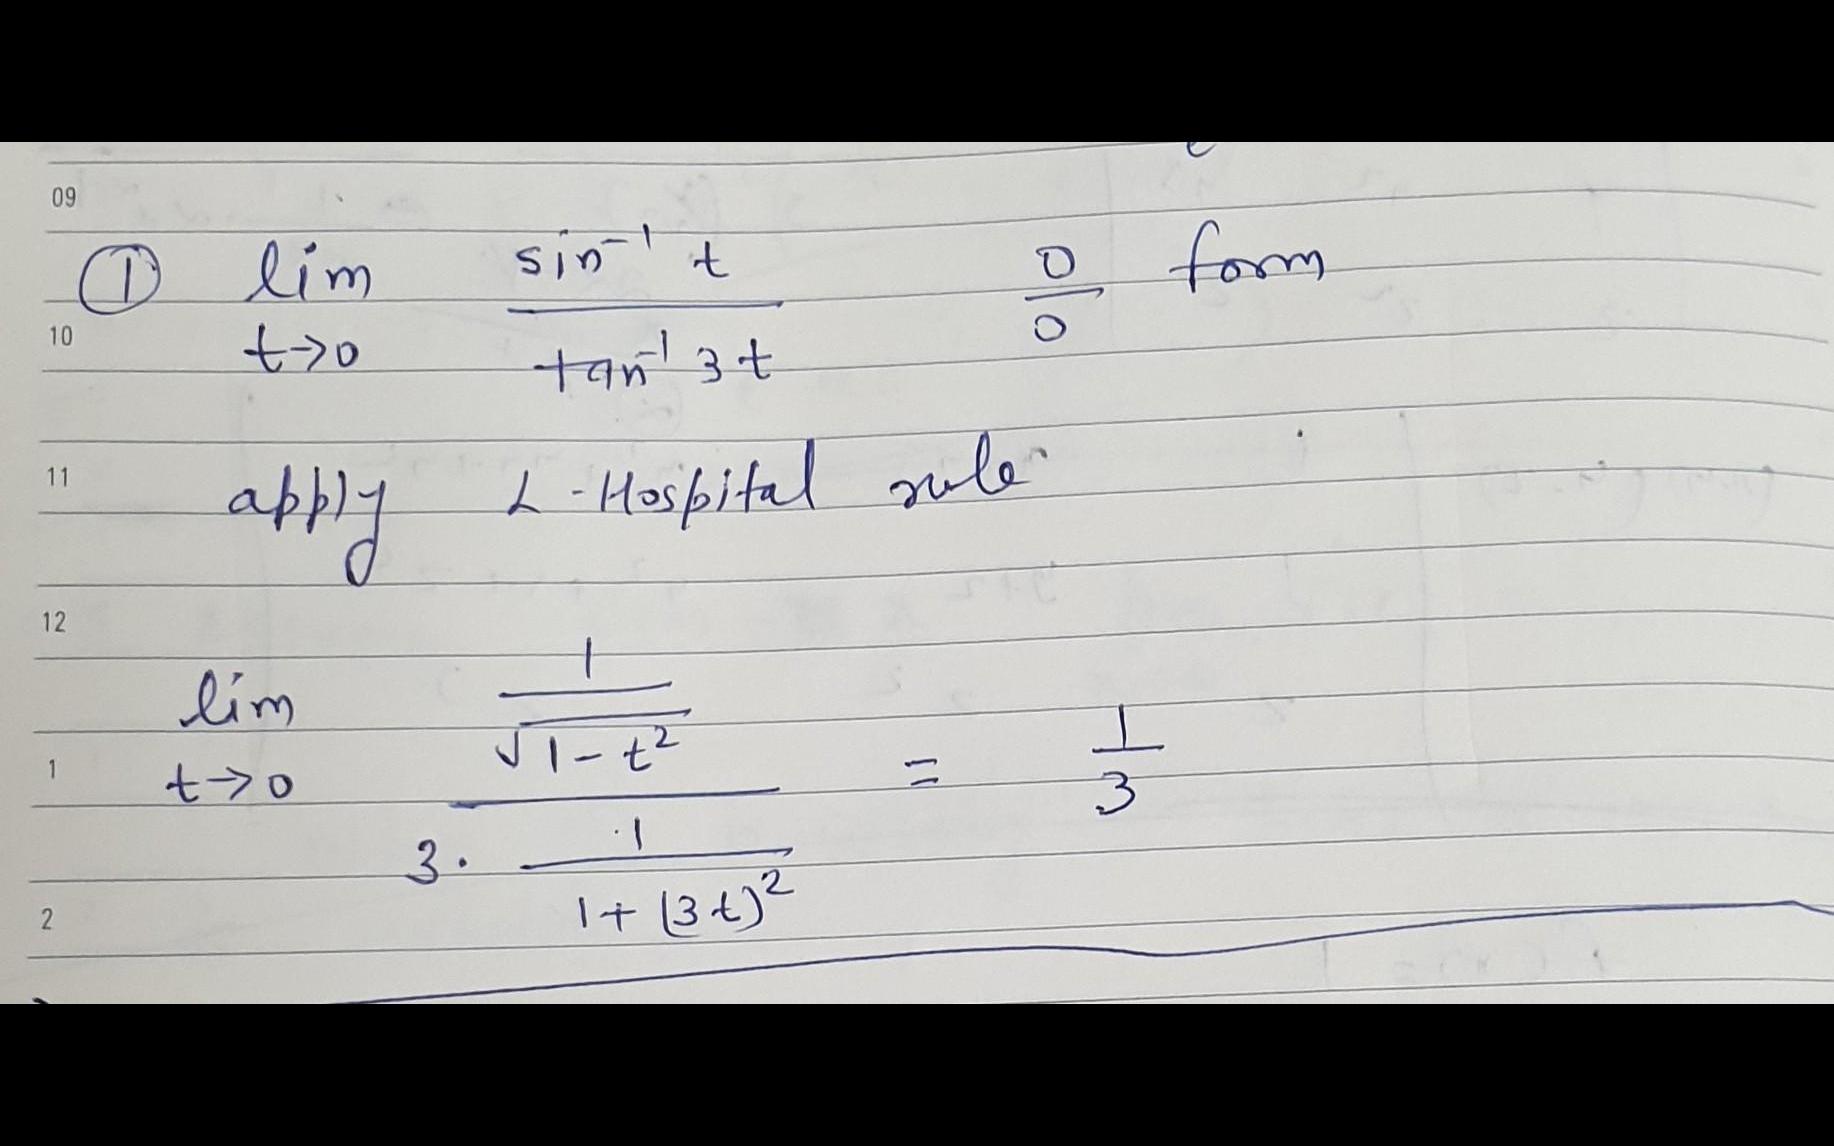 09
① lim sin⁻¹ t / tan⁻¹ 3t 0/0 form
t→0
10
11
apply L-Hospital rule
12
lim (1/√(1-t²)) / (3· 1/(1+(3t)²)) = 1/3
t→0
1
2